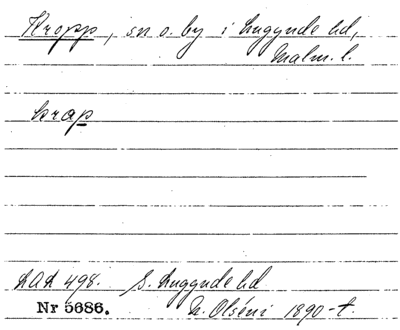 Kropp, sn o. by i Luggude hd,
Malm. l.
krap
LAL 498. S. Luggude hd
Nr 5686. N. Olséni 1890-t.